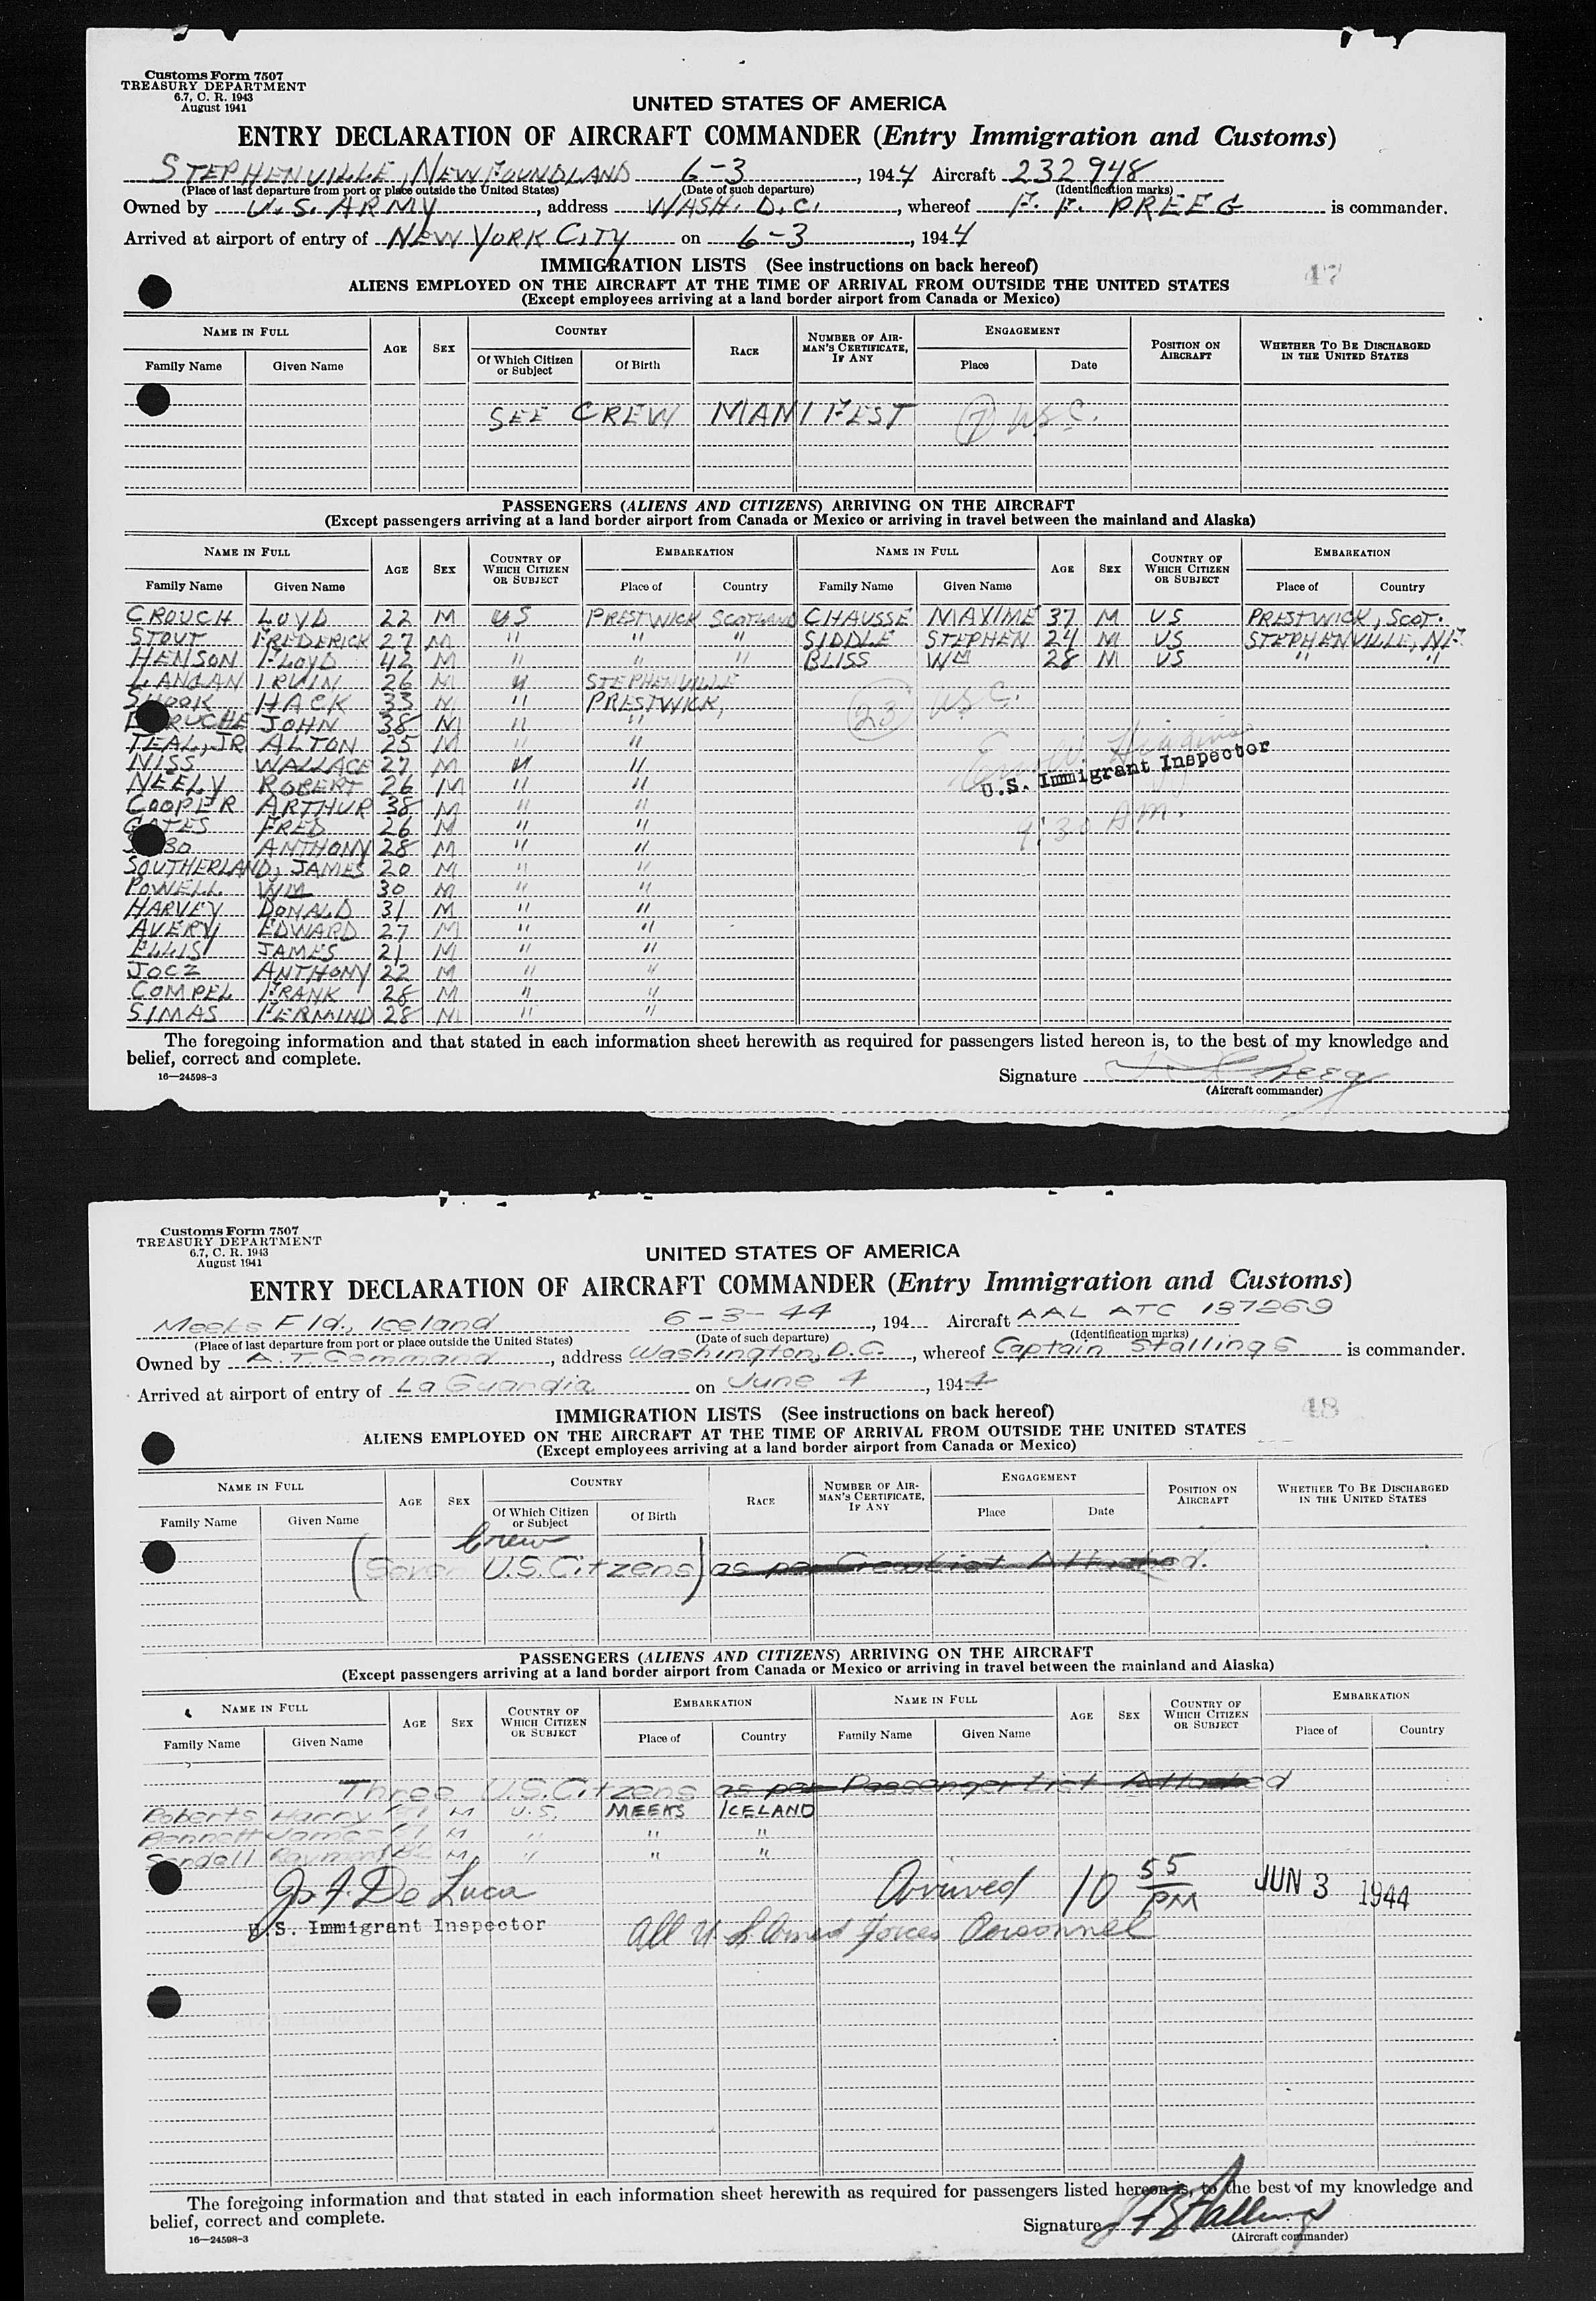 Customs Form 7507
TREASURY DEPARTMENT
6.7, C. R. 1943
August 1941
UNITED STATES OF AMERICA
ENTRY DECLARATION OF AIRCRAFT COMMANDER (Entry Immigration and Customs)
STEPHENVILLE, NEWFOUNDLAND 6-3, 1944 Aircraft 232948
(Place of last departure from port or place outside the United States) (Date of such departure) (Identification marks)
Owned by U.S. ARMY, address WASH. D.C., whereof F. F. PREEG is commander.
Arrived at airport of entry of NEW YORK CITY on 6-3, 1944
IMMIGRATION LISTS (See instructions on back hereof)
47
ALIENS EMPLOYED ON THE AIRCRAFT AT THE TIME OF ARRIVAL FROM OUTSIDE THE UNITED STATES
(Except employees arriving at a land border airport from Canada or Mexico)
NAME IN FULL AGE SEX COUNTRY RACE NUMBER OF AIRMAN'S CERTIFICATE, IF ANY ENGAGEMENT POSITION ON AIRCRAFT WHETHER TO BE DISCHARGED IN THE UNITED STATES
Family Name Given Name Of Which Citizen or Subject Of Birth Place Date
SEE CREW MANIFEST (7) USC.
PASSENGERS (ALIENS AND CITIZENS) ARRIVING ON THE AIRCRAFT
(Except passengers arriving at a land border airport from Canada or Mexico or arriving in travel between the mainland and Alaska)
NAME IN FULL AGE SEX COUNTRY OF WHICH CITIZEN OR SUBJECT EMBARKATION NAME IN FULL AGE SEX COUNTRY OF WHICH CITIZEN OR SUBJECT EMBARKATION
Family Name Given Name Place of Country Family Name Given Name Place of Country
CROUCH LOYD 22 M US PRESTWICK SCOTLAND CHAUSSE MAXIME 37 M US PRESTWICK, SCOT.
STOUT FREDERICK 27 M " " " SIDDLE STEPHEN 24 M US STEPHENVILLE, NF.
HENSON FLOYD 42 M " " " BLISS WM 28 M US " "
LANGAN IRVIN 26 M " STEPHENVILLE
SHOOK HACK 33 M " PRESTWICK, (23) USC.
JOHN 38 M " "
TEAL, JR ALTON 25 M " "
NISS WALLACE 27 M " " U.S. Immigrant Inspector
NEELY ROBERT 26 M " "
COOPER ARTHUR 38 M " "
GATES FRED 26 M " " 9:30 AM.
ANTHONY 28 M " "
SOUTHERLAND, JAMES 20 M " "
POWELL WM 30 M " "
HARVEY DONALD 31 M " "
AVERY EDWARD 27 M " "
ELLIS JAMES 21 M " "
JOCZ ANTHONY 22 M " "
COMPEL FRANK 28 M " "
SIMAS FERMIND 28 M " "
The foregoing information and that stated in each information sheet herewith as required for passengers listed hereon is, to the best of my knowledge and
belief, correct and complete.
16—24598-3
Signature Preeg
(Aircraft commander)
Customs Form 7507
TREASURY DEPARTMENT
6.7, C. R. 1943
August 1941
UNITED STATES OF AMERICA
ENTRY DECLARATION OF AIRCRAFT COMMANDER (Entry Immigration and Customs)
Meeks Fld., Iceland 6-3-44, 194 Aircraft AAL ATC 137269
(Place of last departure from port or place outside the United States) (Date of such departure) (Identification marks)
Owned by A.T. Command, address Washington, D.C., whereof Captain Stallings is commander.
Arrived at airport of entry of La Guardia on June 4, 1944
IMMIGRATION LISTS (See instructions on back hereof)
48
ALIENS EMPLOYED ON THE AIRCRAFT AT THE TIME OF ARRIVAL FROM OUTSIDE THE UNITED STATES
(Except employees arriving at a land border airport from Canada or Mexico)
NAME IN FULL AGE SEX COUNTRY RACE NUMBER OF AIRMAN'S CERTIFICATE, IF ANY ENGAGEMENT POSITION ON AIRCRAFT WHETHER TO BE DISCHARGED IN THE UNITED STATES
Family Name Given Name Of Which Citizen or Subject Of Birth Place Date
Crew
(Seven U.S. Citizens) as per Crew List Attached.
PASSENGERS (ALIENS AND CITIZENS) ARRIVING ON THE AIRCRAFT
(Except passengers arriving at a land border airport from Canada or Mexico or arriving in travel between the mainland and Alaska)
NAME IN FULL AGE SEX COUNTRY OF WHICH CITIZEN OR SUBJECT EMBARKATION NAME IN FULL AGE SEX COUNTRY OF WHICH CITIZEN OR SUBJECT EMBARKATION
Family Name Given Name Place of Country Family Name Given Name Place of Country
Three U.S. Citizens as per Passenger List Attached
Roberts Harry M U.S. MEEKS ICELAND
Bennett James M " " "
Sandall Raymond M " " "
Jos. A. De Luca Arrived 10 55 PM JUN 3 1944
U.S. Immigrant Inspector All U S Armed Forces Personnel
The foregoing information and that stated in each information sheet herewith as required for passengers listed hereon is, to the best of my knowledge and
belief, correct and complete.
16—24598-3
Signature Stallings
(Aircraft commander)